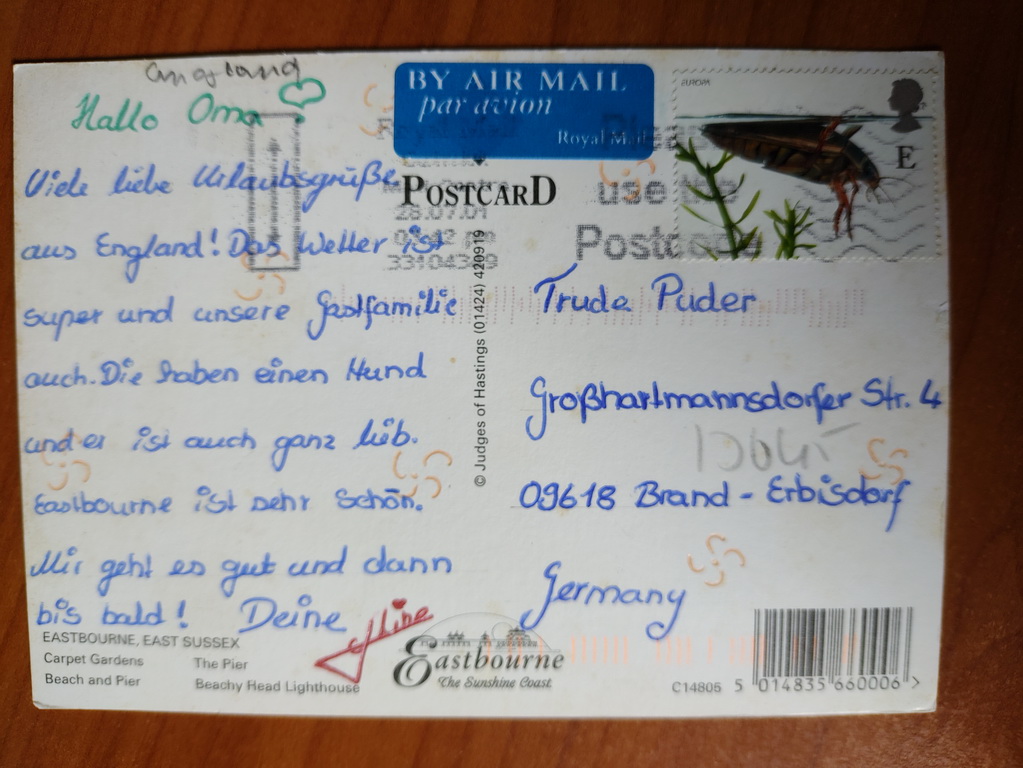 England
Hallo Oma
Viele liebe Urlaubsgrüße
aus England! Das Wetter ist
super und unsere Gastfamilie
auch. Die haben einen Hund
und er ist auch ganz lieb.
Eastbourne ist sehr schön.
Mir geht es gut und dann
bis bald! Deine
Aline
EASTBOURNE, EAST SUSSEX
Carpet Gardens The Pier
Beach and Pier Beachy Head Lighthouse
BY AIR MAIL
par avion
Royal Mail
POSTCARD
28.07.01
Please
use the
Postcode
EUROPA
E
© Judges of Hastings (01424) 420919
Trude Puder
Großhartmannsdorfer Str. 4
09618 Brand - Erbisdorf
Germany
Eastbourne
The Sunshine Coast
C14805 5 014835 660006 >